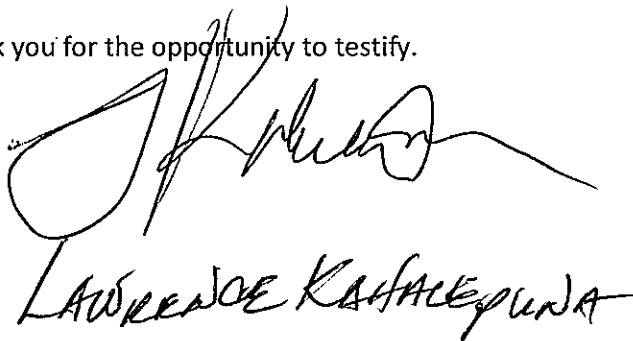 k you for the opportunity to testify.
LAWRENCE KAHALEPUNA